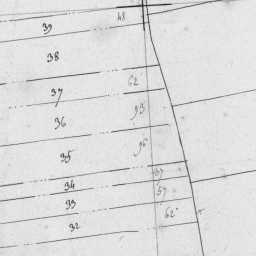 48
39
38
62
37
93
36
96
35
37
34
57
33
62
32